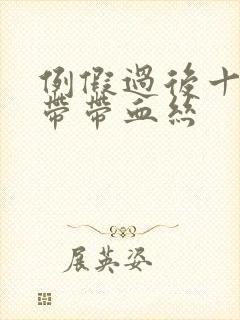 例假過後十
帶帶血絲
展英姿